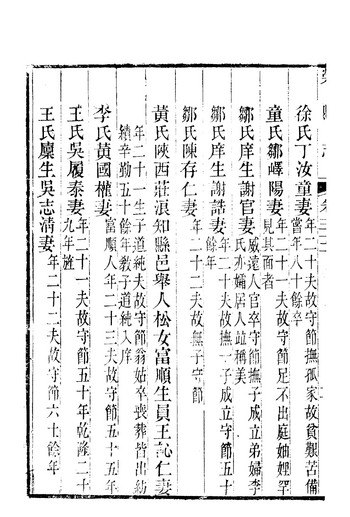 徐氏丁汝童妻年二十一夫故守節撫孤家故貧艱苦備
嘗年八十餘卒
童氏鄒嶧陽妻年二十一夫故守節足不出庭妯娌罕
見其面者
鄒氏庠生謝官妻威遠人官卒守節撫子成立弟婦李
氏亦孀居人竝稱美
鄒氏庠生謝誥妻年二十夫故撫子成立守節五十
餘年
鄒氏陳存仁妻年二十二夫故撫子守節
黃氏陝西莊浪知縣邑舉人松女富順生員王訫仁妻
年二十一生子道純夫故守節翁姑卒喪葬皆出紡
績辛勤五十餘年教子道純入庠
李氏黃國權妻富順人年二十三夫故守節五十七年
王氏吳履泰妻年二十一夫故守節五十年乾隆二十
九年旌
王氏廩生吳志淸妻年二十二夫故守節六十餘年